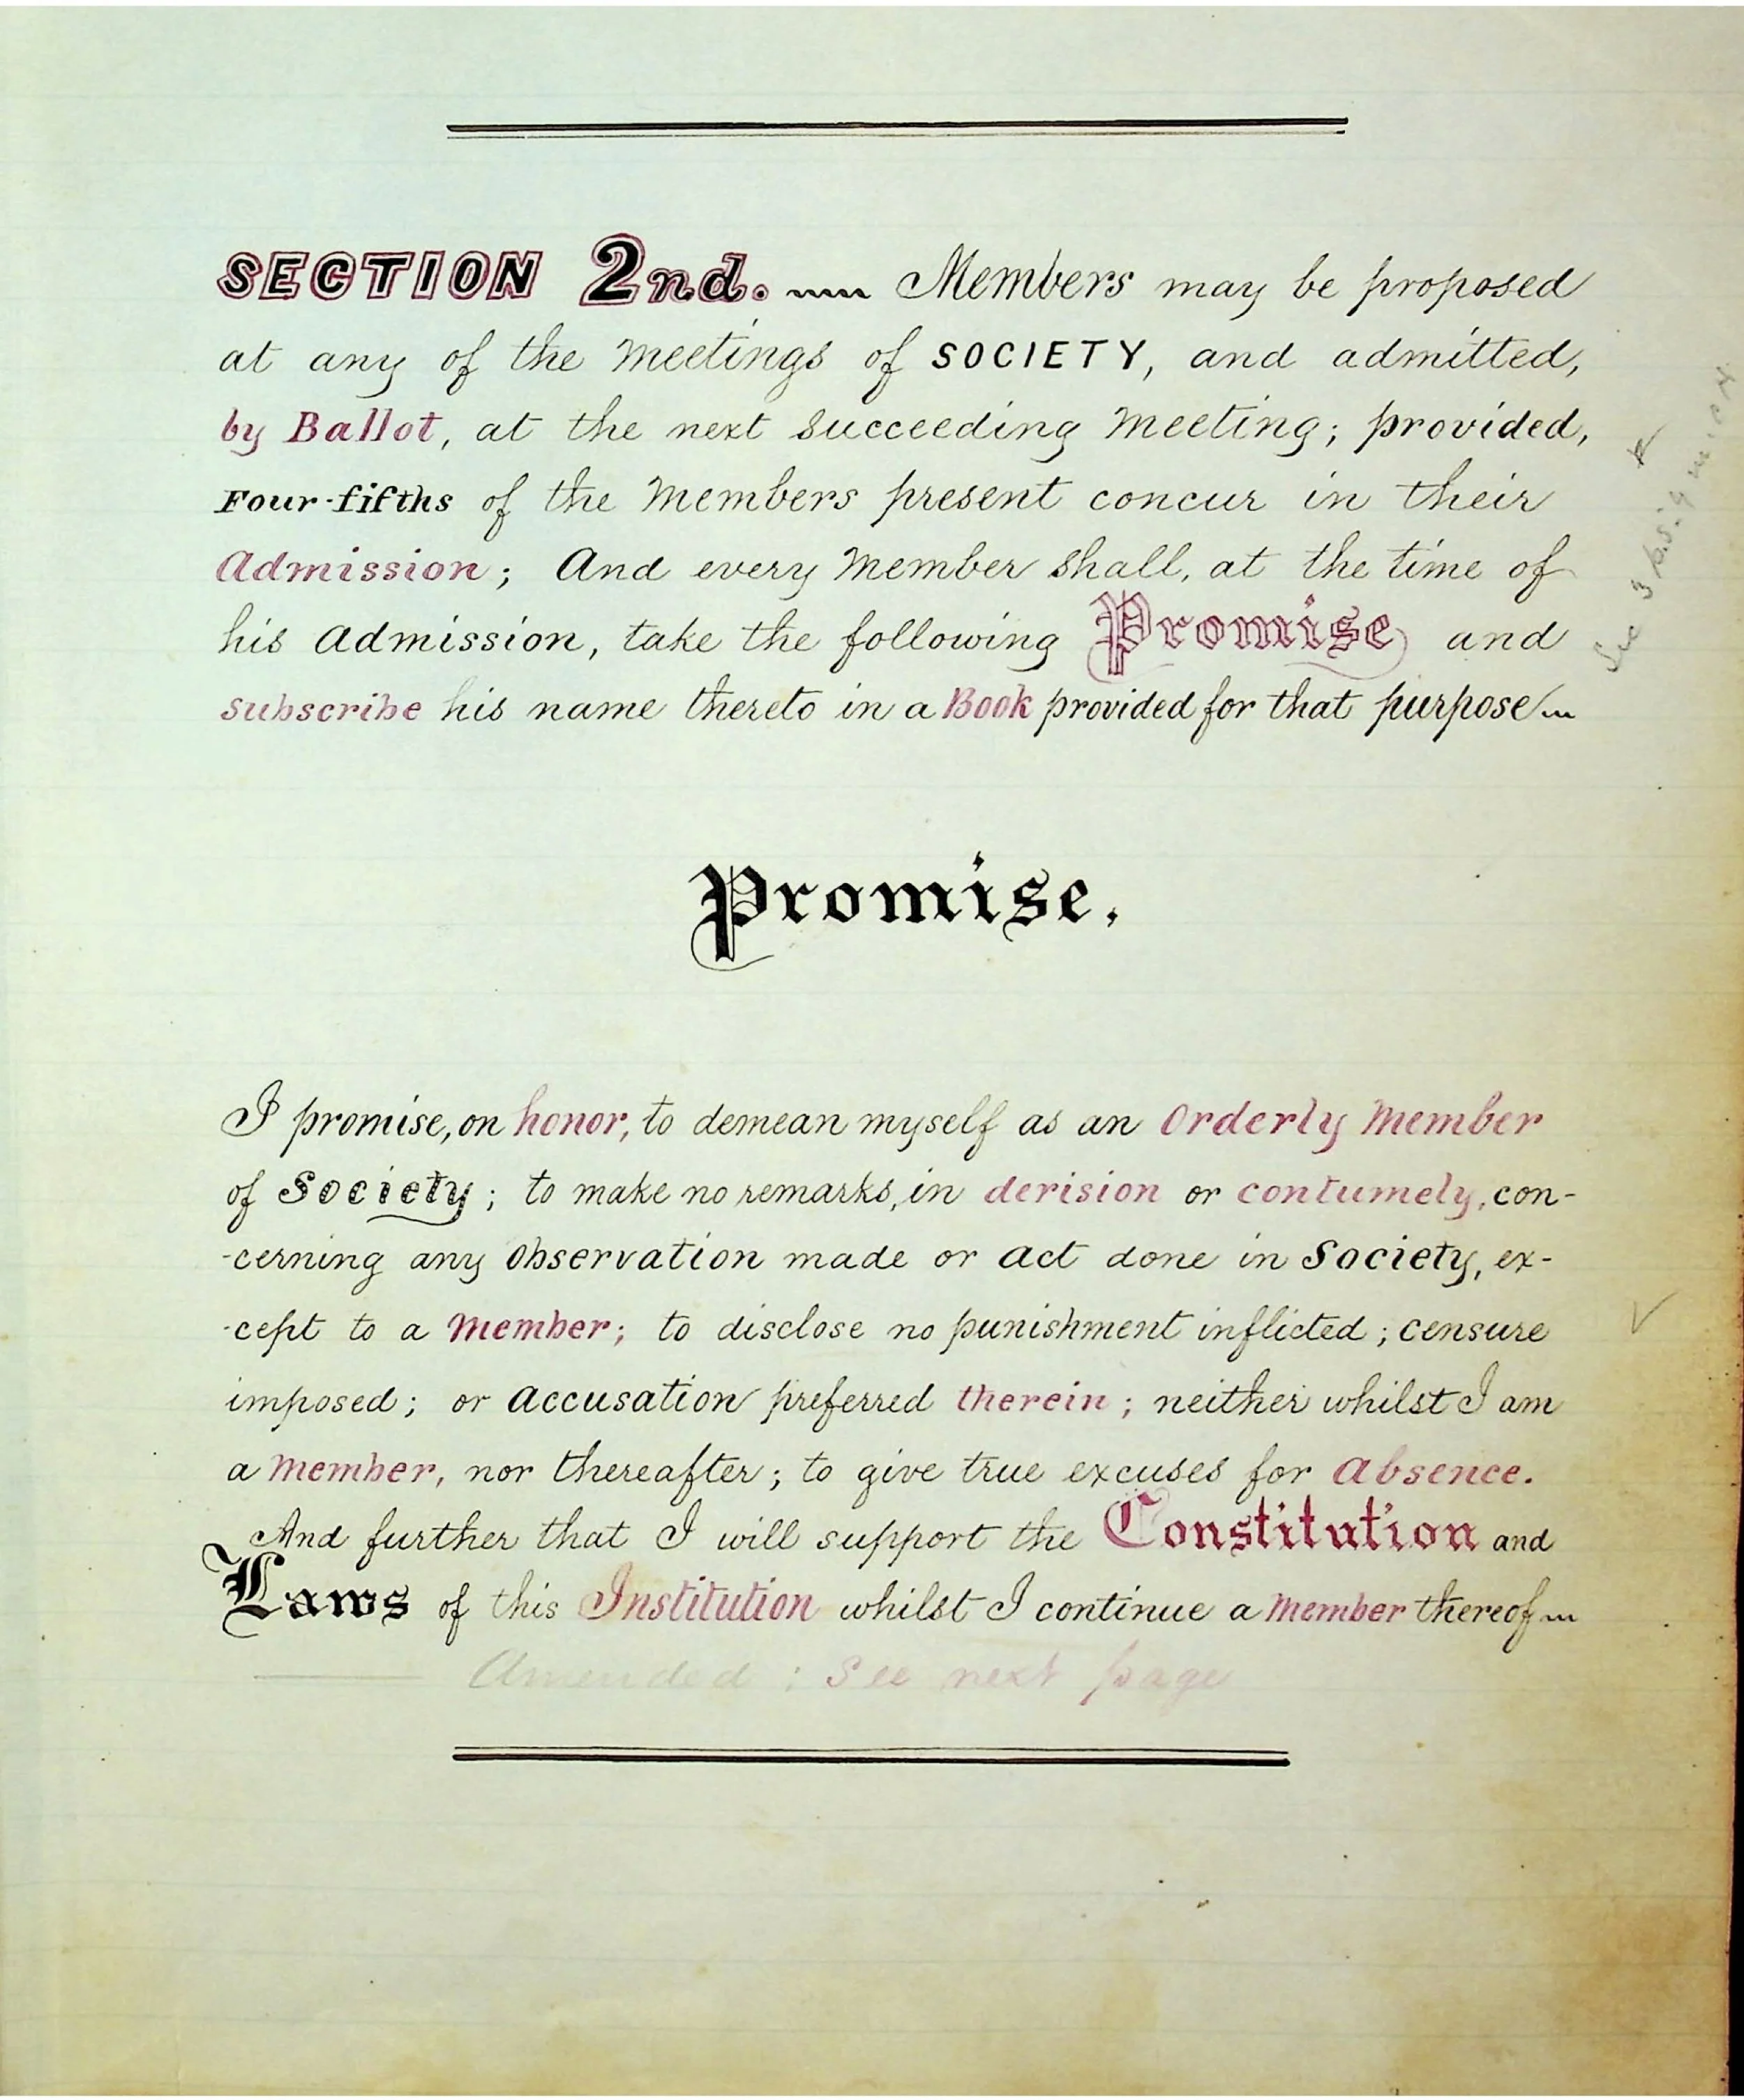 SECTION 2nd. Members may be proposed
at any of the Meetings of SOCIETY, and admitted,
by Ballot, at the next succeeding Meeting; provided,
Four-fifths of the Members present concur in their
Admission; And every Member shall, at the time of
his Admission, take the following Promise and
subscribe his name thereto in a Book provided for that purpose
Promise.
I promise, on honor, to demean myself as an Orderly Member
of Society; to make no remarks, in derision or contumely, con-
-cerning any Observation made or Act done in Society, ex-
-cept to a Member; to disclose no punishment inflicted; censure
imposed; or Accusation preferred therein; neither whilst I am
a Member, nor thereafter; to give true excuses for Absence.
And further that I will support the Constitution and
Laws of this Institution whilst I continue a Member thereof
Amended: See next page